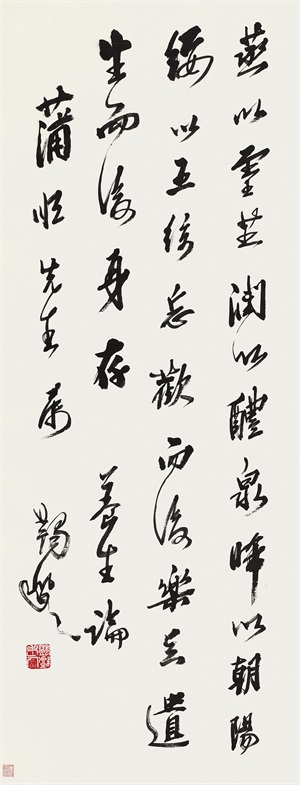 蒸以靈芝潤以醴泉晞以朝陽
綏以五絃忘歡而後樂足遺
生而後身存 養生論
蒲 先生屬